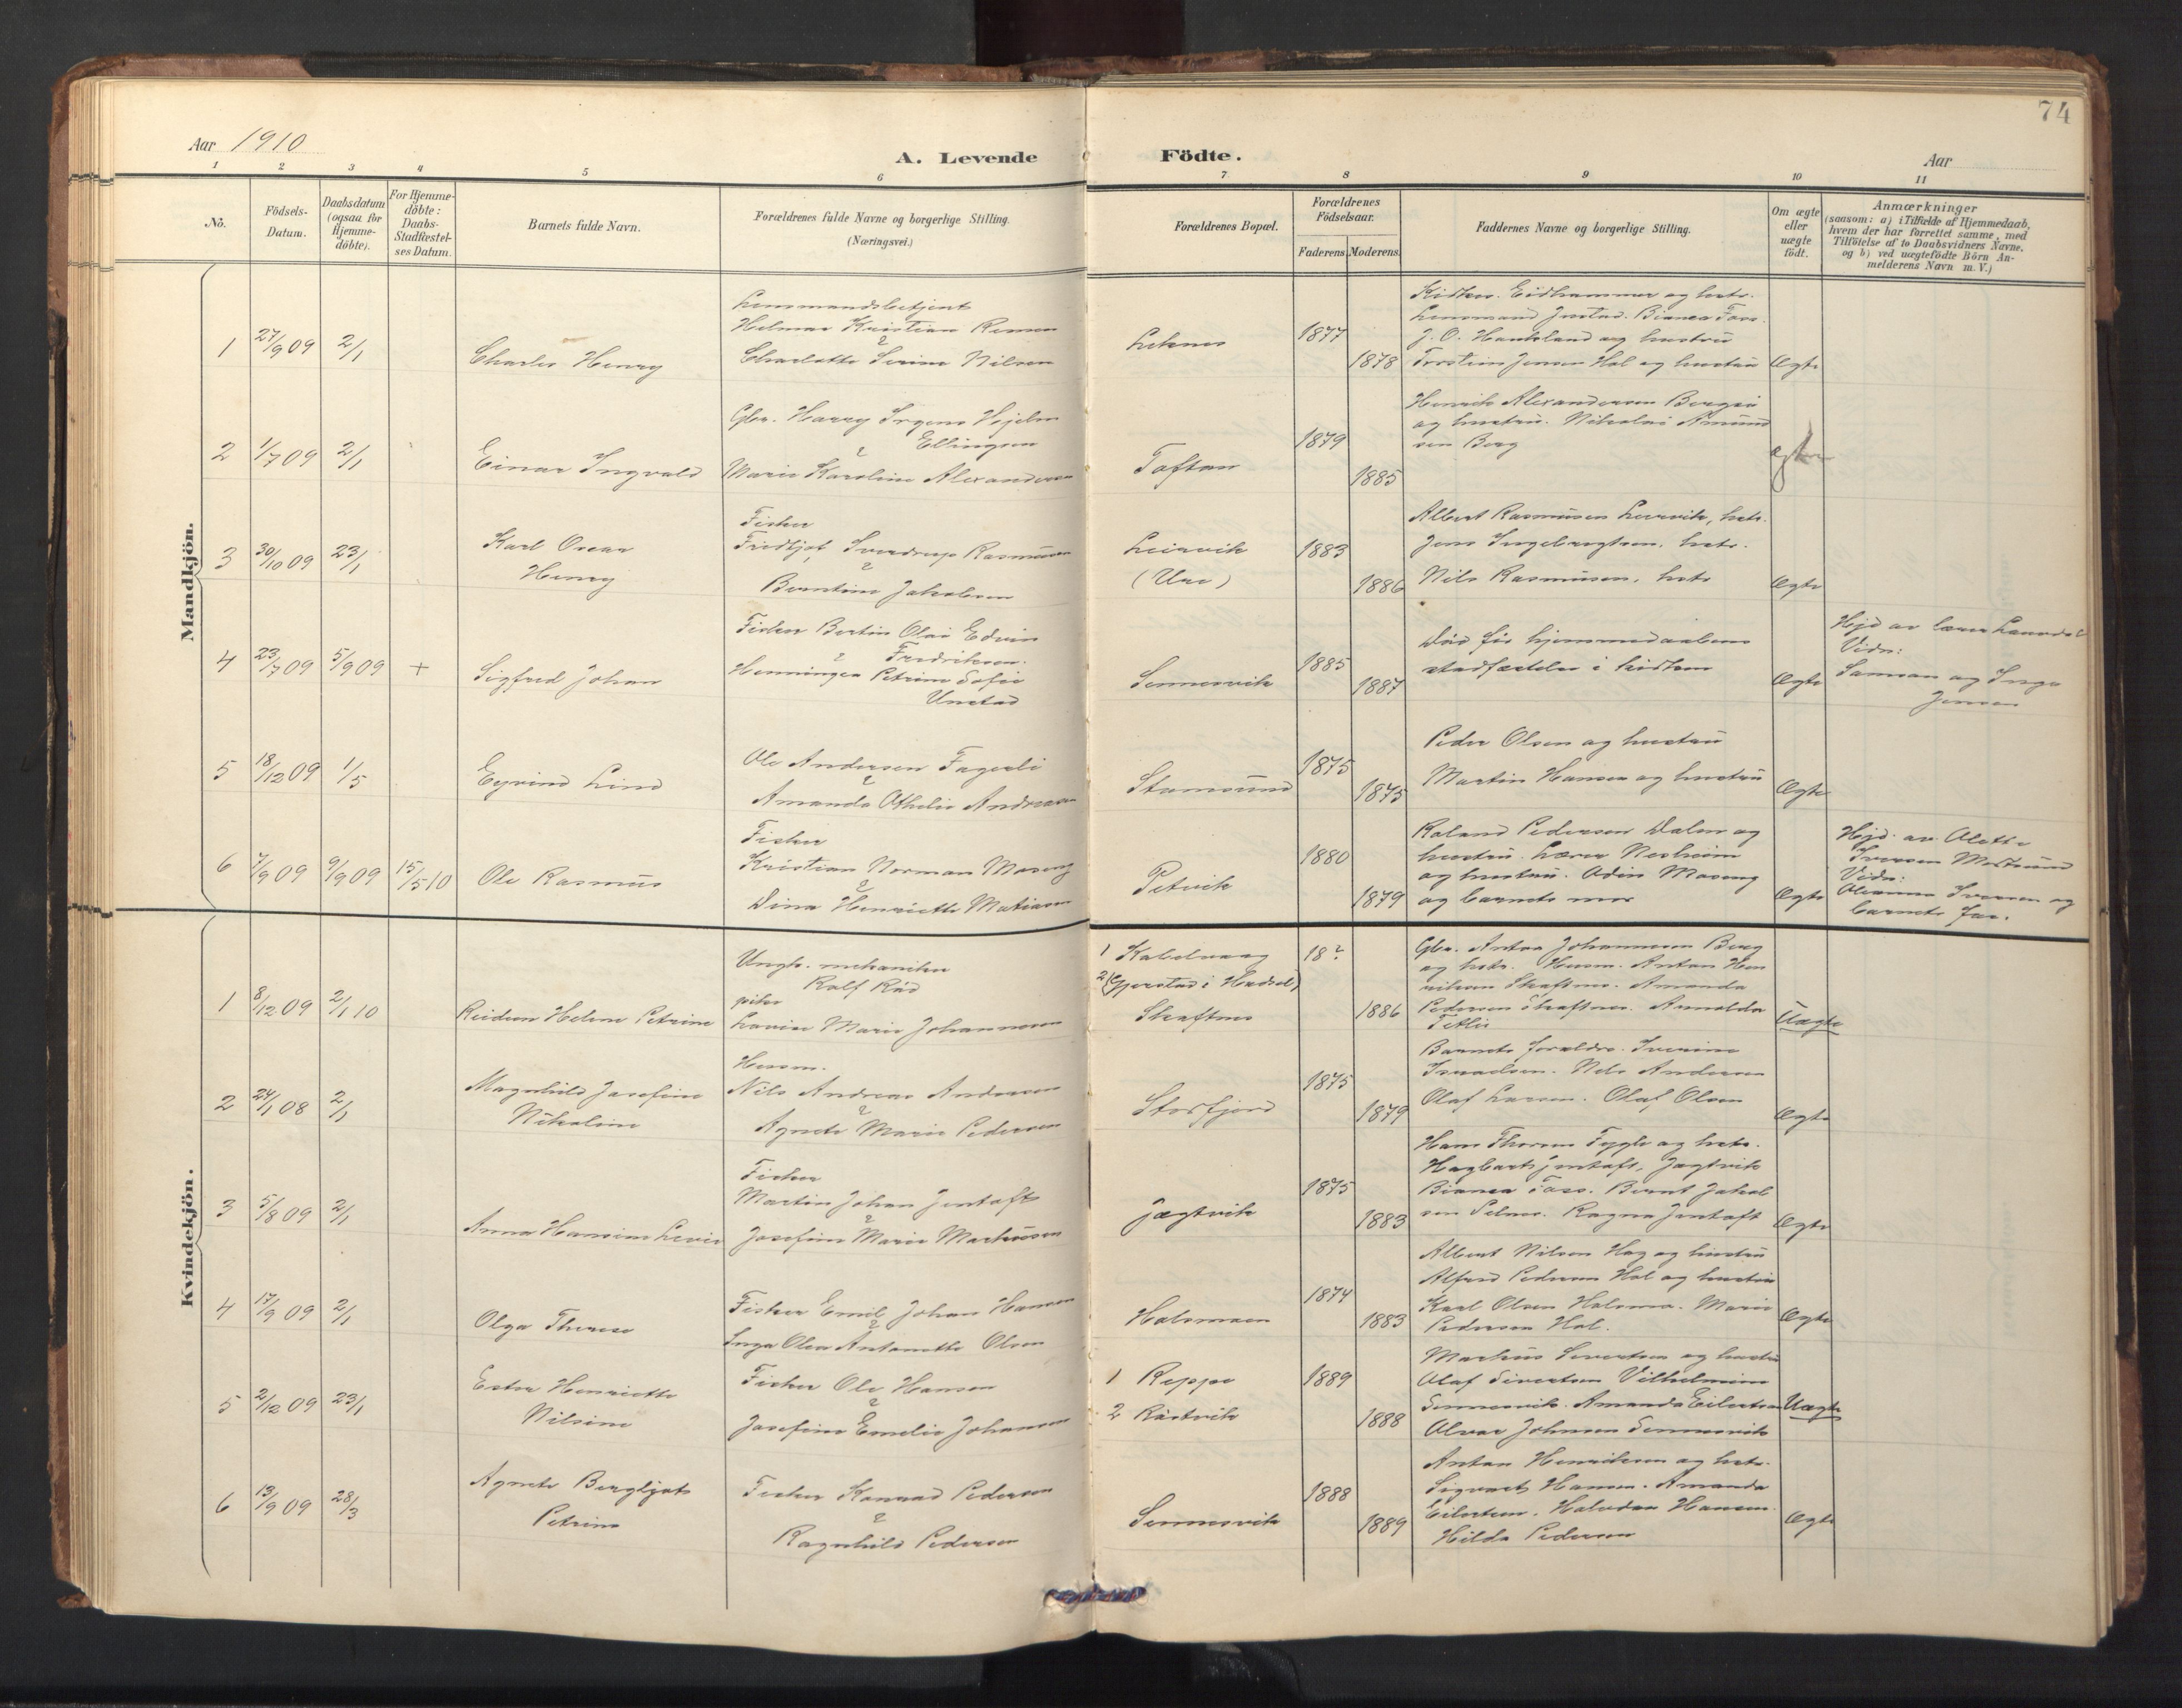 74
Aar 1910
A. Levende Födte.
Aar
1 2 3 4 5 6 7 8 9 10 11
No.
Födsels-
Datum.
Daabsdatum
(ogsaa for
Hjemme-
döbte).
For Hjemme-
döbte:
Daabs-
Stadfæstel-
ses Datum.
Barnets fulde Navn.
Forældrenes fulde Navne og borgerlige Stilling.
(Næringsvei.)
Forældrenes Bopæl.
Forældrenes
Födselsaar.
Faderens. Moderens.
Faddernes Navne og borgerlige Stilling.
Om ægte
eller
uægte
födt.
Anmærkninger
(saasom: a) i Tilfælde af Hjemmedaab,
hvem der har forrettet samme, med
Tilföielse af to Daabsvidners Navne.
og b) ved uægtefödte Börn An-
melderens Navn m.V.)
Mandkjön.
1 27/9 09 2/1
Charles Henry
Lensmandsbetjent
Helmar Kristian Remen
&
Charlotte Serine Nilsen
Leknes
1877
1878
Kirkes. Eidhammer og hstr.
Lensmand Justad. Bianca Foss.
J. O. Haukland og hustru
Torstein Jensen Hol og hustru
Ægte
2 1/7 09 2/1
Einar Ingvald
Gbr. Harry Irgens Hjelm
& Ellingsen
Marie Karoline Alexandersen
Toftan
1879
1885
Henrik Alexandersen
og hustru. Nikolai Amund
sen Berg
ægte
3 30/10 09 23/1
Karl Oscar
Henry
Fisker
Fridtjof Sverdrup Rasmussen
&
Berntine Jakobsen
Leirvik
(Ure)
1883
1886
Albert Rasmussen Leirvik, hstr.
Jens Ingebrigtsen, hstr.
Nils Rasmussen, hstr
Ægte
4 23/7 09 5/9 09 +
Sigfred Johan
Fisker Bertin Olai Edvin
& Fredriksen.
Henningea Petrine Sofie
Unstad
Sennesvik
1885
1887
Död før hjemmedaabens
stadfæstelse i kirken
Ægte
Hjd av lærer
Vidn:
Samson og Inga
Jensen
5 18/12 09 1/5
Eyvind Lind
Ole Andersen Fagerli
&
Amanda Othelie Andreasen
Stamsund
1875
1875
Peder Olsen og hustru
Martin Hansen og hustru
Ægte
6 7/9 09 9/9 09 15/5 10
Ole Rasmus
Fisker
Kristian Norman Moseng
&
Dina Henriette Matiasen
Petvik
1880
1879
Roland Pedersen Dalen og
hustru. Lærer Nesheim
og hustru. Odin Moseng
og barnets mor
Ægte
Hjd. av Alette
Iversen Mortsund
Vidn:
Iversen og
barnets far.
Kvindekjön.
1 8/12 09 2/1 10
Reidun Helene Petrine
Ungk. mekaniker
Rolf Röd
pike
Lovise Marie Johannesen
1 Kabelvaag
2 (Gjerstad i Hadsel)
Skaftnes
18?
1886
Gbr. Anton Johannesen Berg
og hstr. Husm. Anton Hen
riksen Skaftnes. Amanda
Pedersen Skaftnes. Arnolda
Tetlie
Uægte
2 24/1 08 2/1
Magnhild Josefine
Nikoline
Husm.
Nils Andreas Andersen
&
Agnete Marie Pedersen
Storfjord
1875
1879
Barnets forældre. Iverine
Israelsen. Nels Andersen
Olaf Larsen. Olaf Olsen
Ægte
3 5/8 09 2/1
Anna Hansine Levie
Fisker
Martin Johan Jentoft
&
Josefine Marie Markussen
Jægtvik
1875
1883
Hans Thoresen Fygle og hstr.
Hagbart Jentoft, Jægtvik
Bianca Foss. Bernt Jakob
sen Petnes. Ragna Jentoft
Ægte
4 17/9 09 2/1
Olga Therese
Fisker Emil Johan Hansen
&
Inga Olea Antonette Olsen
Holsmoen
1874
1883
Albert Nilsen Hag og hustru
Alfred Pedersen Hol og hustru
Karl Olsen Holsmo. Marie
Pedersen Hol.
Ægte
5 2/12 09 23/1
Ester Henriette
Nilsine
Fisker Ole Hansen
&
Josefine Emelie Johansen
1 Reppe
2 Röstvik
1889
1888
Markus Sivertsen og hustru
Olaf Sivertsen Vilhelmine
Sennesvik. Amanda Eilertsen
Alvar Johnsen Sennesvik
Uægte
6 13/9 09 28/3
Agnete Bergljot
Petrine
Fisker Konrad Pedersen
&
Ragnhild Pedersen
Sennesvik
1888
1889
Anton Henriksen og hstr.
Sigvart Hansen. Amanda
Eilertsen. Halvdan Hansen.
Hilda Pedersen
Ægte